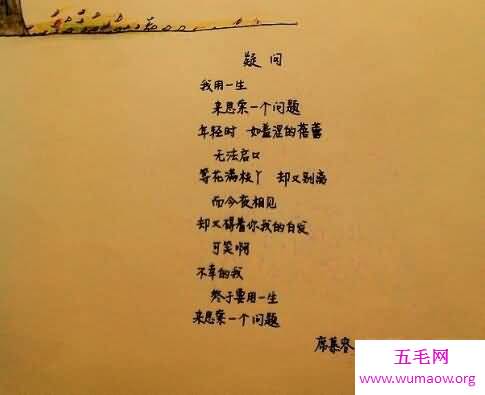 疑问
我用一生
来思索一个问题
年轻时 如羞涩的蓓蕾
无法启口
等花满枝丫 却又别离
而今夜相见
却又碍着你我的白发
可笑啊
不幸的我
终于要用一生
来思索一个问题
席慕容
五毛网
www.wumaow.org